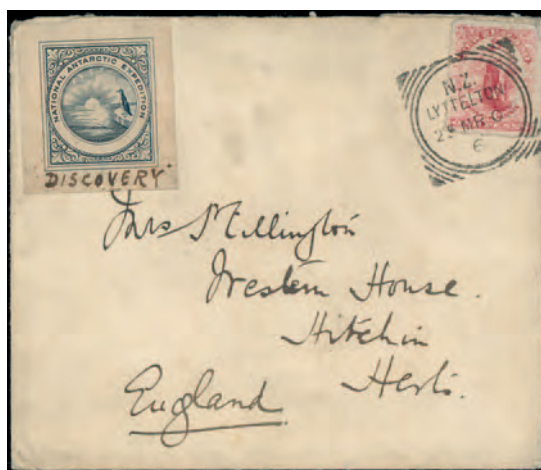 NATIONAL ANTARCTIC EXPEDITION
DISCOVERY
N.Z.
LYTTELTON
MR
6
Mrs
Western House.
Hitchin
Herts.
England